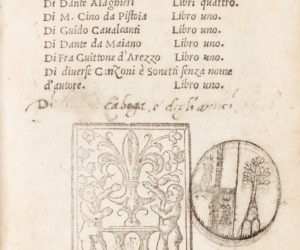 Di Dante Alaghieri Libri quattro.
Di M. Cino da Pistoia Libro uno.
Di Guido Caualcanti Libro uno.
Di Dante da Maiano Libro uno.
Di Fra Guittone d'Arezzo Libro uno.
Di diuerse CanZoni è Sonetti senza nome
d'autore. Libro uno.
Di Caboga e degli amici